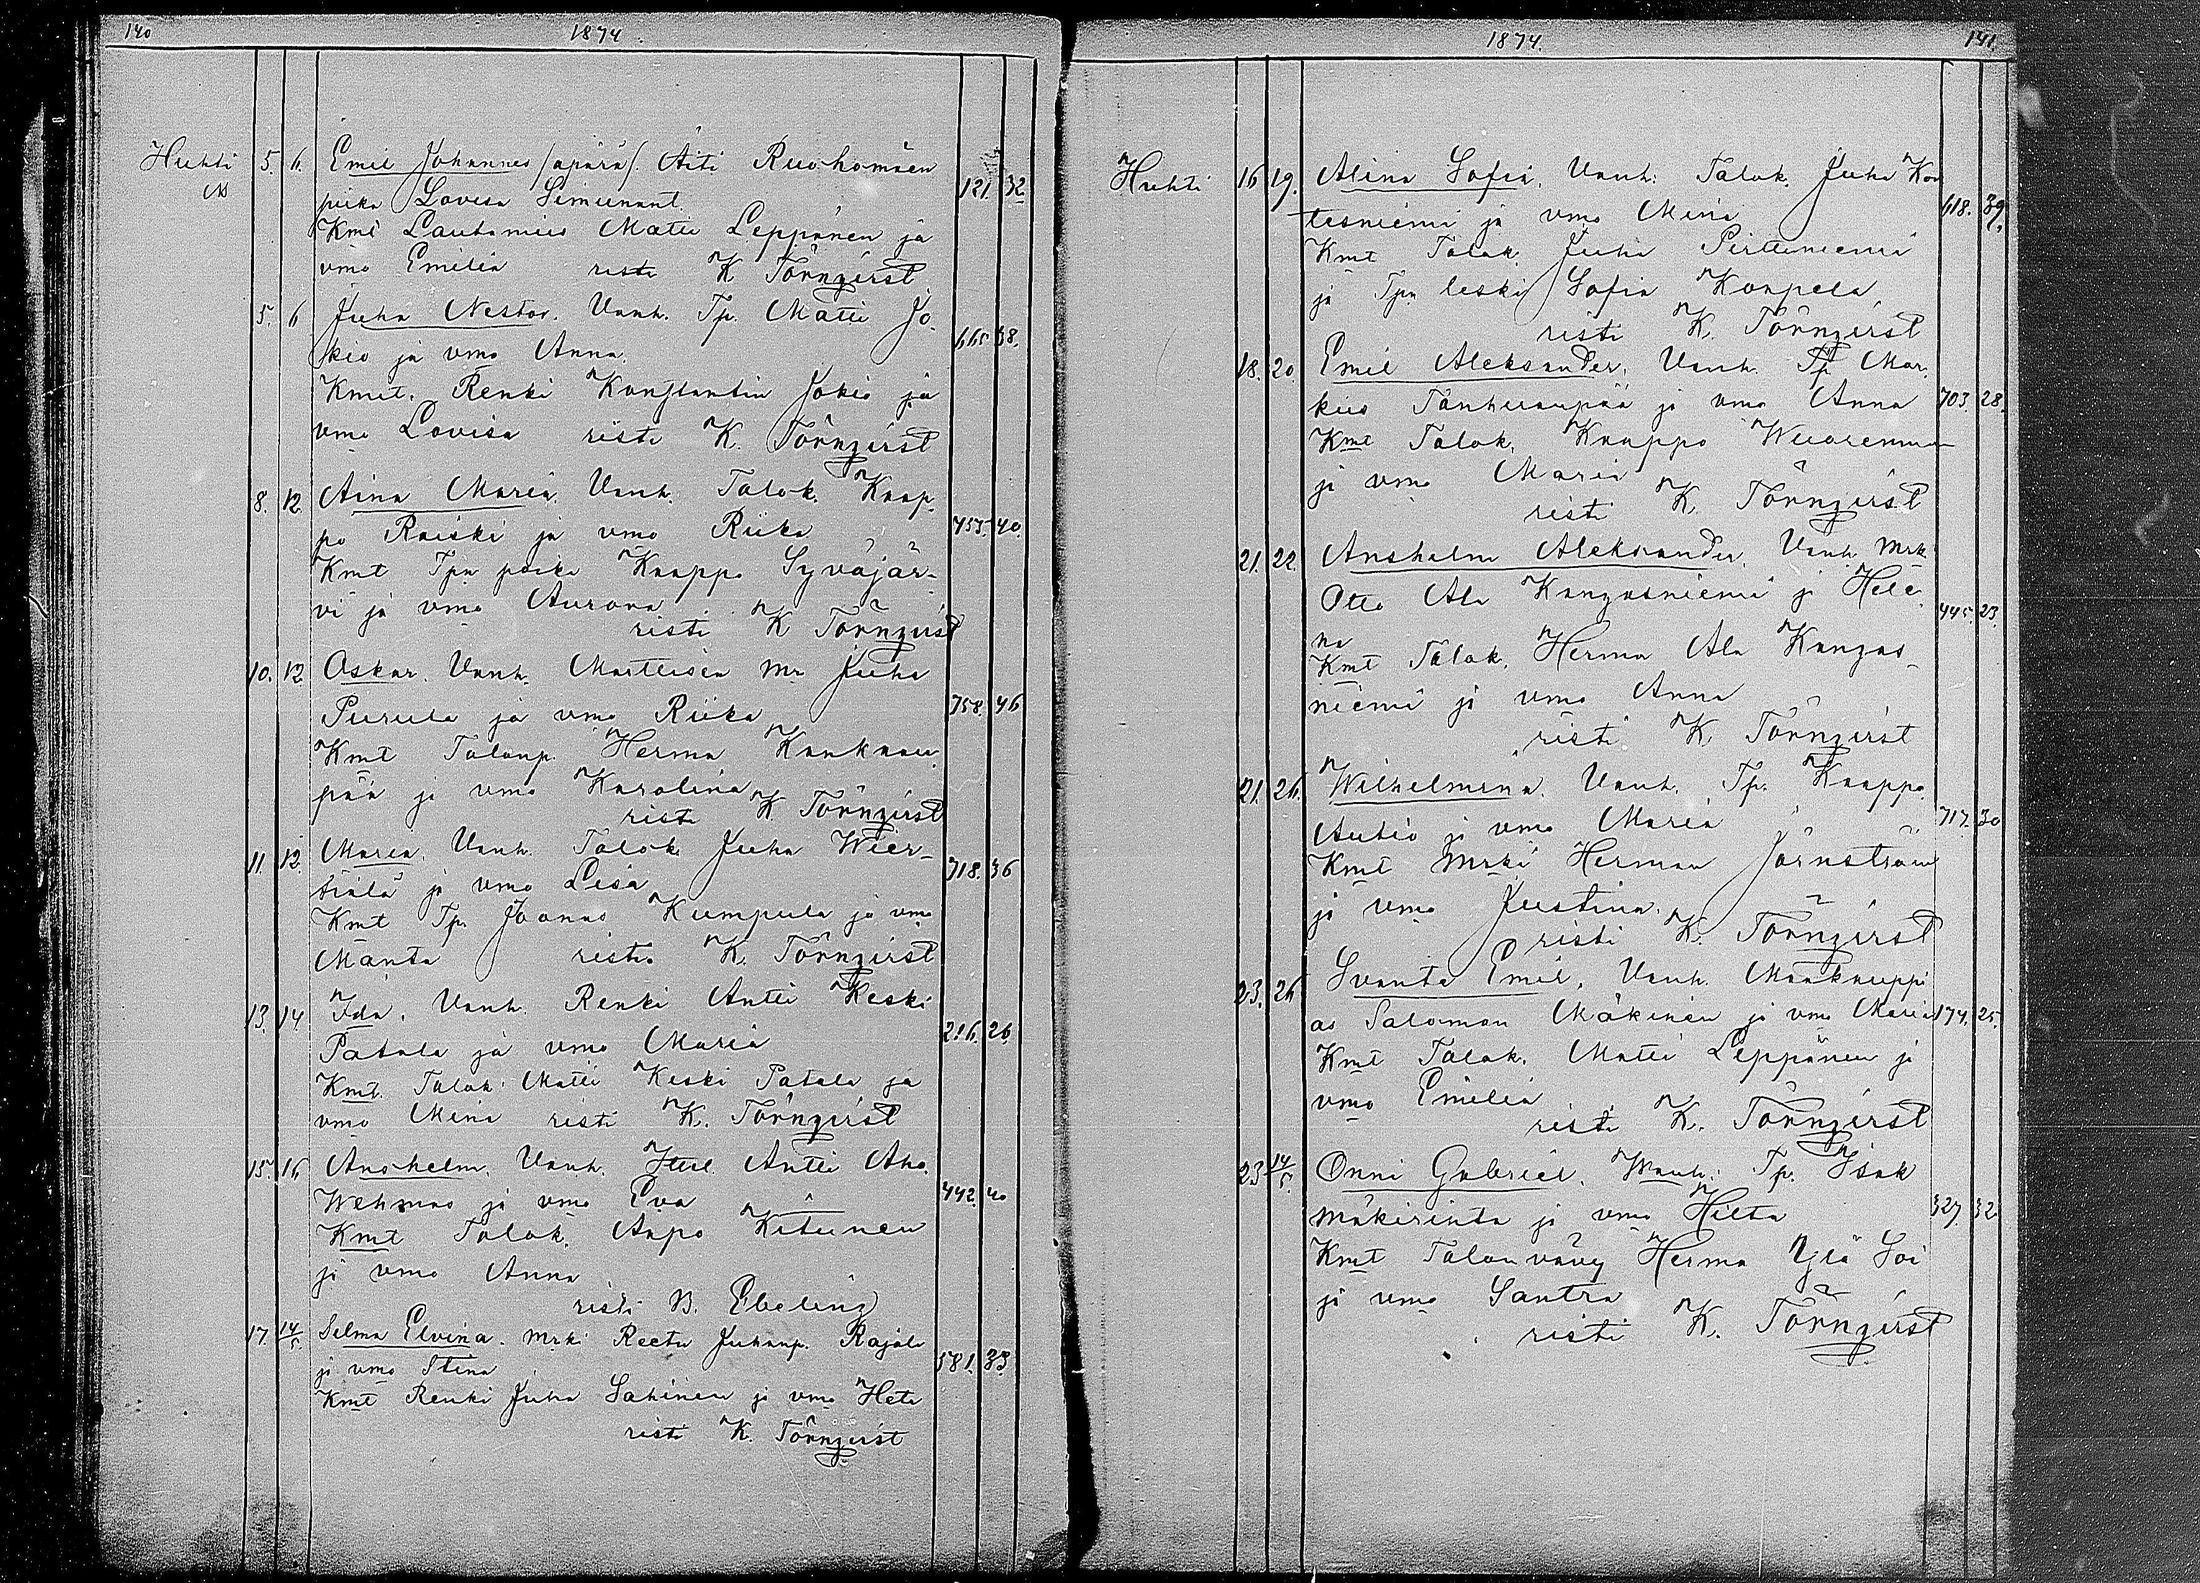 140 1874.
Huhti 5. 6. Emil Johannes /äpärä/. Äiti Ruohomäen
piika Lovisa Simunant. 121. 32
Kmt Lautamies Matti Leppänen ja
vmo Emilia risti K Törnqvist
5. 6 Juha Nestor. Vanh. Tp. Matti Jo-
kio ja vmo Anna. 38.
Kmt. Renki Konstantin Jokio ja
vmo Lovisa risti K. Törnqvist
8. 12 Aina Maria. Vanh. Talok. Kaap-
po Raiski ja vmo Riika 40.
Kmt Tpn poika Kaappo Syväjär-
vi ja vmo Aurora
risti K Törnqvist
10. 12 Oskar. Vanh. Mr Juha
Purula ja vmo Riika 758. 46
Kmt Talonp. Herma Kankaan-
pää ja vmo Karolina
risti K Törnqvist
11. 12. Maria. Vanh. Talok. Juha Wier-
tiälä ja vmo Lisa 718. 36
Kmt Tp. Joonas Kumpula ja vmo
Manta risti K. Törnqvist
13. 14 Ida. Vanh. Renki Antti Keski
Patala ja vmo Maria 216. 26
Kmt. Talok. Matti Keski Patala ja
vmo Mina risti K. Törnqvist
15. 16 Anshelm. Vanh. Itsel. Antti Aho
Wehmas ja vmo Eva 442. 40
Kmt Talok. Aapo Kitunen
ja vmo Anna
risti B. Ebeling
17. 14/5. Selma Elvina. Mrk. Reetu Juhanp. Rajala
ja vmo Stina 581. 33
Kmt Renki Juha Sahinen ja vmo Heta
risti K. Törnqvist
1874. 141.
Huhti 16 19. Alina Sofia. Vanh. Talok. Juha Kon
tesniemi ja vmo Mina 618. 39.
Kmt Talok. Juha Pirttiniemi
ja Tpn leski Sofia Korpela
risti K. Törnqvist
18. 20. Emil Aleksander. Vanh. Tp Mar-
kus Tanhuanpää ja vmo Anna 703. 28.
Kmt Talok. Kaappo Wuorenmaa
ja vmo Maria
risti K. Törnqvist
21. 22. Anshelm Aleksander. Vanh. Mrk
Otto Ala Kangasniemi ja Hele- 445. 23
na
Kmt Talok. Herma Ala Kangas-
niemi ja vmo Anna
risti K Törnqvist
21. 26. Wilhelmina. Vanh. Tp. Kaappo
Autio ja vmo Maria 717. 30
Kmt Mrki Herman Jörnström
ja vmo Justina.
risti K. Törnqvist
23. 26 Svante Emil. Vanh. Maakauppi
as Salomon Mäkinen ja vmo Maria 174. 25.
Kmt Talok. Matti Leppänen ja
vmo Emilia
risti K. Törnqvist
23 14/5. Onni Gabriel. Wanh: Tp. Isak
Mäkirinta ja vmo Hilta 327 32.
Kmt Talon vävy Herma Yliä Soi
ja vmo Santra
risti K. Törnqvist